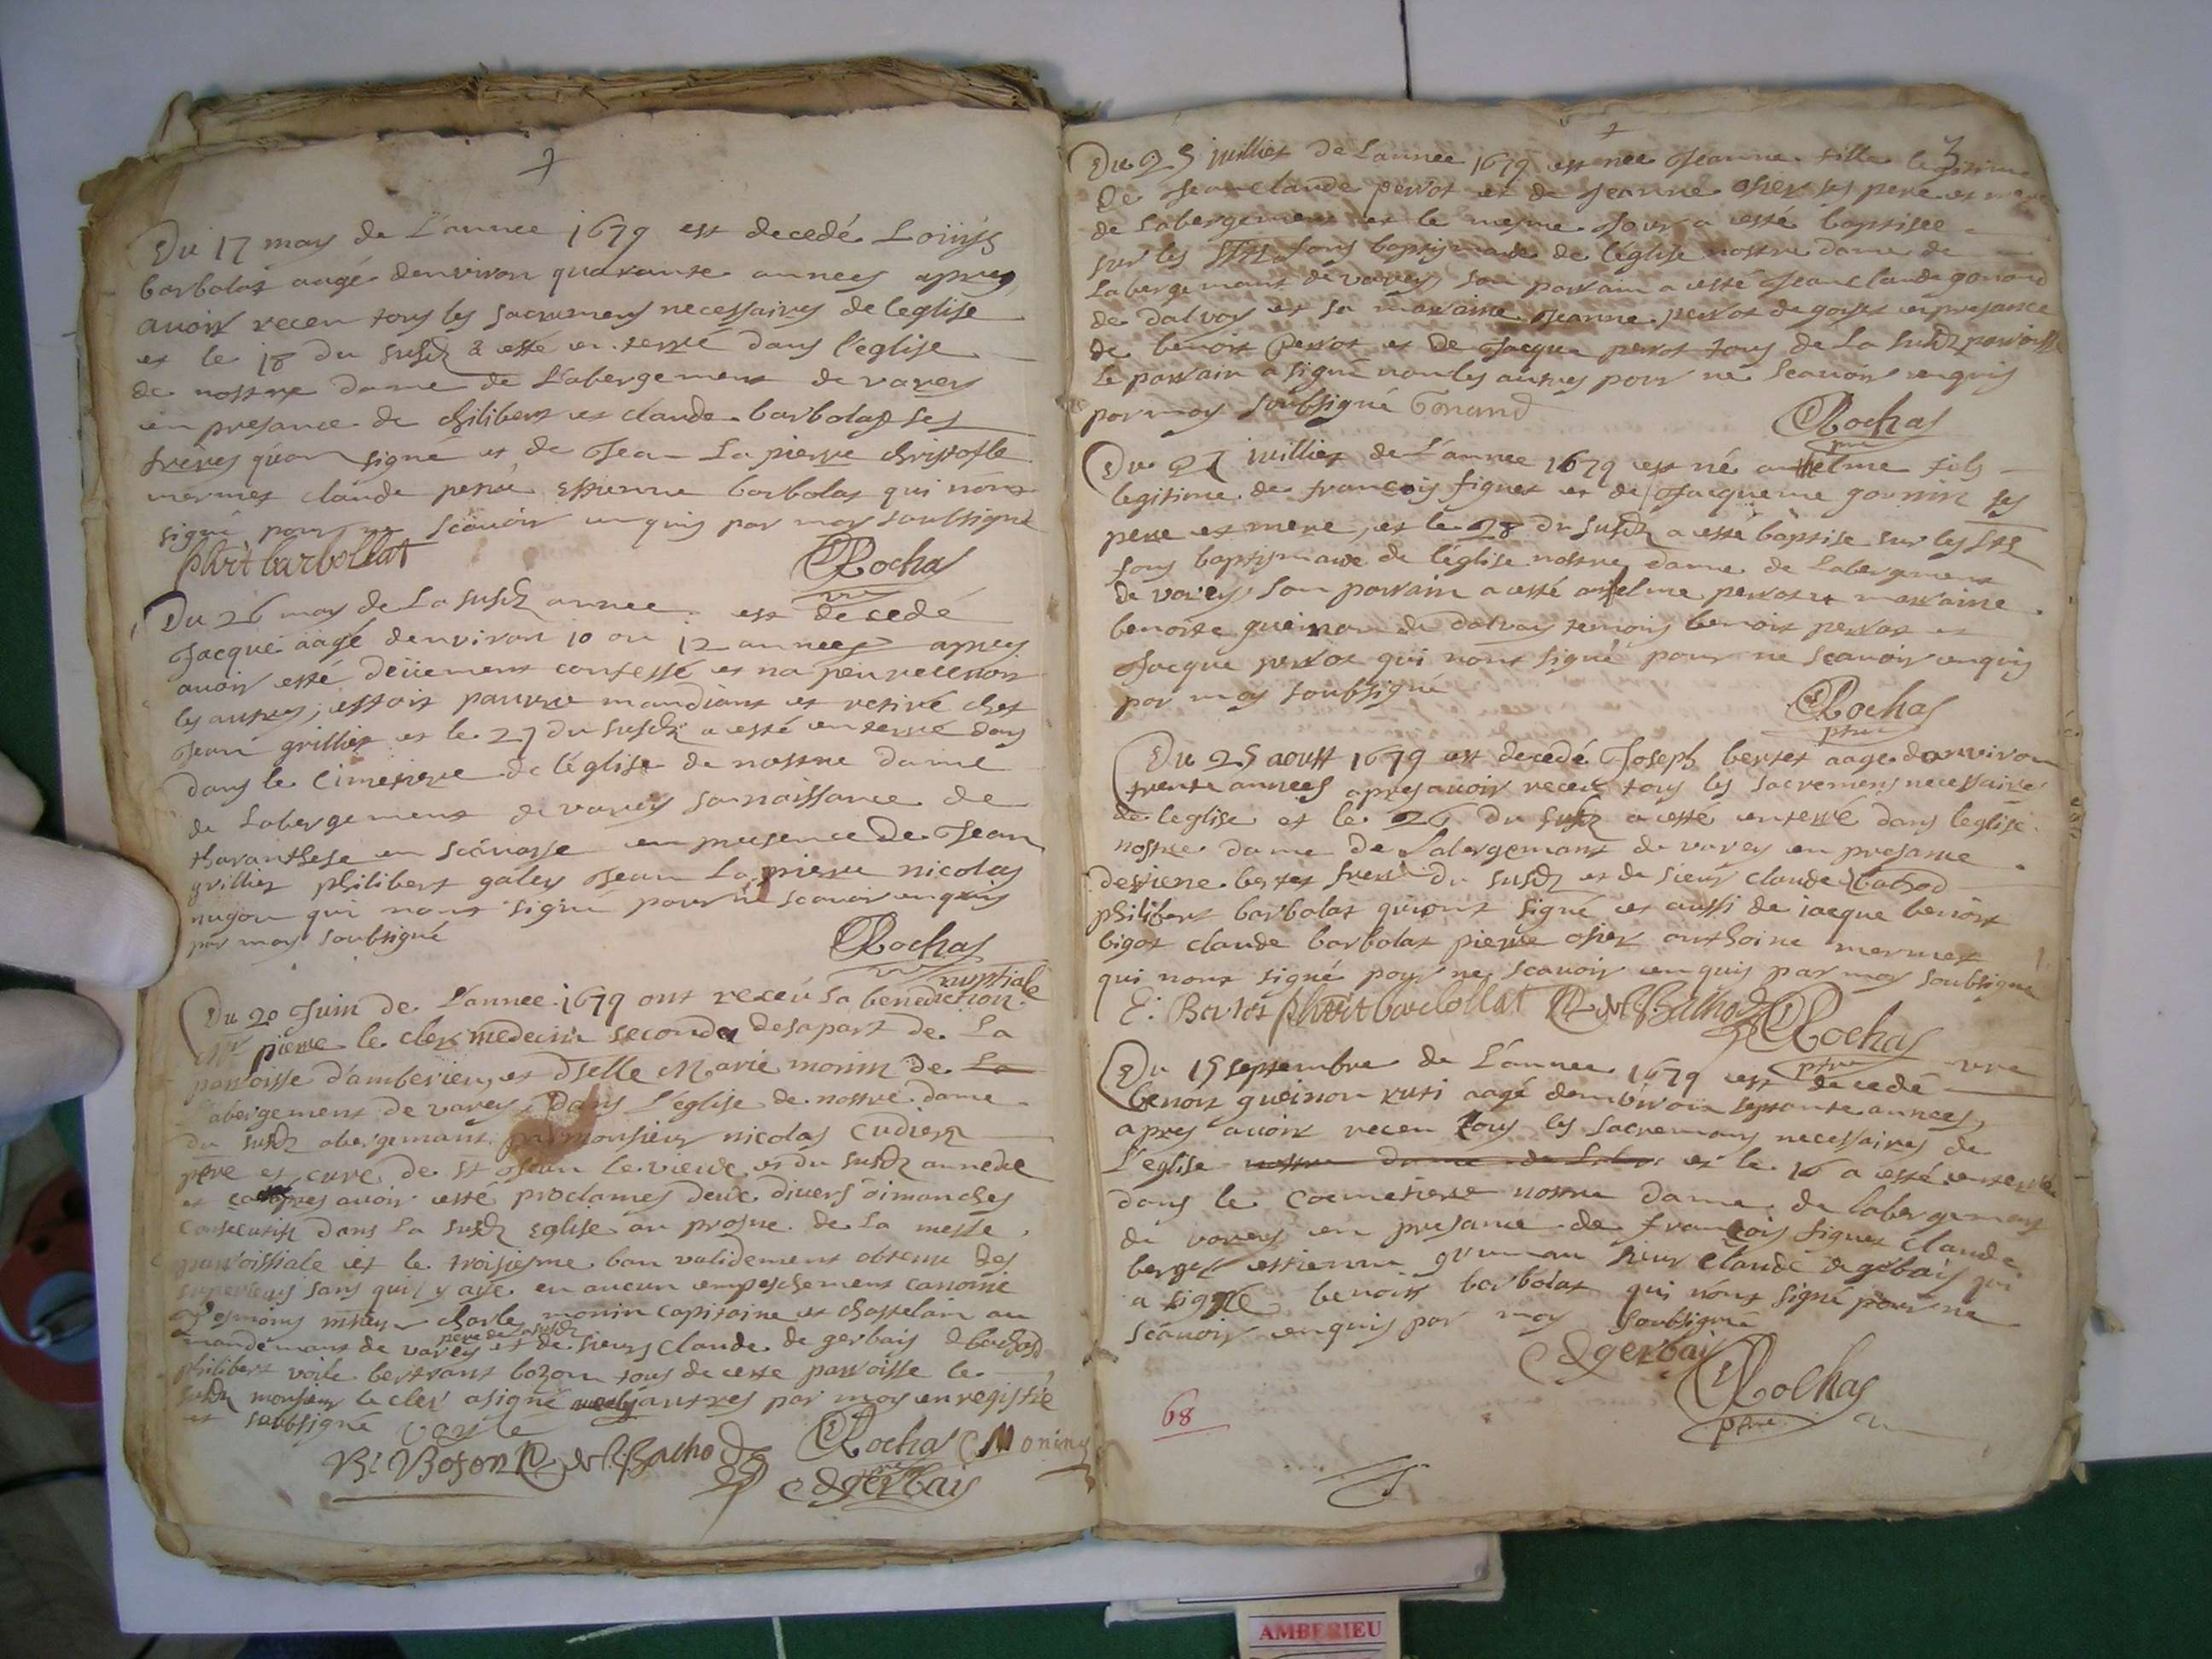 Du 17 may de L'annee 1679 est decedé Loiiys
barbolat aagé denviron quarante annees apres
avoir receu tous les sacremens necessaires de leglise
et le 18 du susdt a esté enterré dans l'église
de nostre dame de L'abergement de varey
en presance de philibert et claude barbolat ses
freres qu'on signé et de Jean La pierre christofle
mermet claude perrü estienne barbolat qui n'ont
signé pour ne scavoir enquis par moy soubsigné
phbt barbollat
Rochas
Du 26 may de La susdt annee est decedé
Jacque aagé denviron 10 ou 12 annees apres
avoir esté deüement confessé et na peu recevoir
les autres, estoit pauvre mandiant et retiré chet
Jean grilliet et le 27 du susdt a esté enterré dans
dans le cimetiere de léglise de nostre dame
de Labergement de varey sa naissance de
tharanthese en scavoye en presence de Jean
grilliet philibert galey Jean La pierre nicolas
nugon qui nont signé pour ne scavoir enquis
par moy soubsigné
Rochas
nuptiale
Du 20 Juin de L'annee 1679 ont receu la benediction
Mr pierre le clerc medecin seconde desapart de La
parroisse d'amberieu, et dselle Marie monin de La
Labergement de varey, dans L'église de nostre dame
du susdt abergemant par monsieur nicolas Cudier
prre et curé de st Jean le vieux et du susdt annexe
et apres avoir esté proclames deux divers dimanches
consecutifs dans La susdt Eglise au prosne de La messe
parroissiale et le troisiesme ban validement obtenu des
superieurs sans quil y aÿe eu aucun empeschement canonié
tesmoins msieur charle monin capitaine et chastelain au
pere de La susdt
mandemant de varey et de sieurs Claude de gerbais de bachod
philibert voile bertrant bozon tous de cette parroisse le
susdt monsieur le clerc a signé autres par moy enregistré
et soubsigné
B: Boson Bachod Rochas Monin
C Degerbais
3
Du 25 juillet de Lannee 1679 est nee Jeanne fille legitime
de Jean claude perrot et de Jeanne osier ses pere et mere
de Labergement et le mesme Jour a esté baptisee
sur les sts fons baptismaux de léglise nostre dame de
Labergemant de varey son parrain a esté Jean claude gonand
de dalvoy et sa marraine Jeanne perrot de gorses en presance
de benoit perrot et de Jacque perrot tous de La susdt parroisse
Le parrain a signé non les autres pour ne scavoir enquis
par moy soubsigné Gonand
Rochas
pre
Du 27 juillet de L'annee 1679 est né anthelme fils
legitime de francois figuet et de Jacqueme gonnin ses
pere et mere, et le 28 du susdt a esté baptise sur les sts
fons baptismaux de léglise nostre dame de Labergement
de varey, son parrain a esté antelme perrot et marraine
benoite gueinon de dalvoy temoins benoit perrot et
Jacque perrot qui nont signé pour ne scavoir enquis
par moy soubsigné
Rochas
ptre
Du 25 aoust 1679 est decedé Joseph bertet aage denviron
trente annees apres avoir receu tous les sacremens necessaires
de leglise et le 26 du susdt a esté enterré dans leglise
nostre dame de Labergemant de varey en presance
destiene bertet frere du susdt et de sieur claude bachod
philibert barbolat qui ont signé et aussi de jacque benoit
bigot claude barbolat pierre osier anthoine mermet
qui nont signé pour ne scavoir enquis par moy soubsigné
E: Bertet phbt barbollat Bachod Rochas
ptre
Du 15 septembre de L'annee 1679 est decedé
benoit gueinon ruti aagé demviron septante annees,
apres avoir receu tous les sacremans necessaires de
L'eglise nostre dame de Laber et le 16 a esté enterré
dans le coemetiere nostre dame de labergemant
de varey en presance de francois figuet claude
berger estienne grumau sieur claude degebais qui
a signé benoist barbolat qui nont signé pour ne
scavoir enquis par moy soubsigné
C Degerbais
Rochas
ptre
68
AMBERIEU